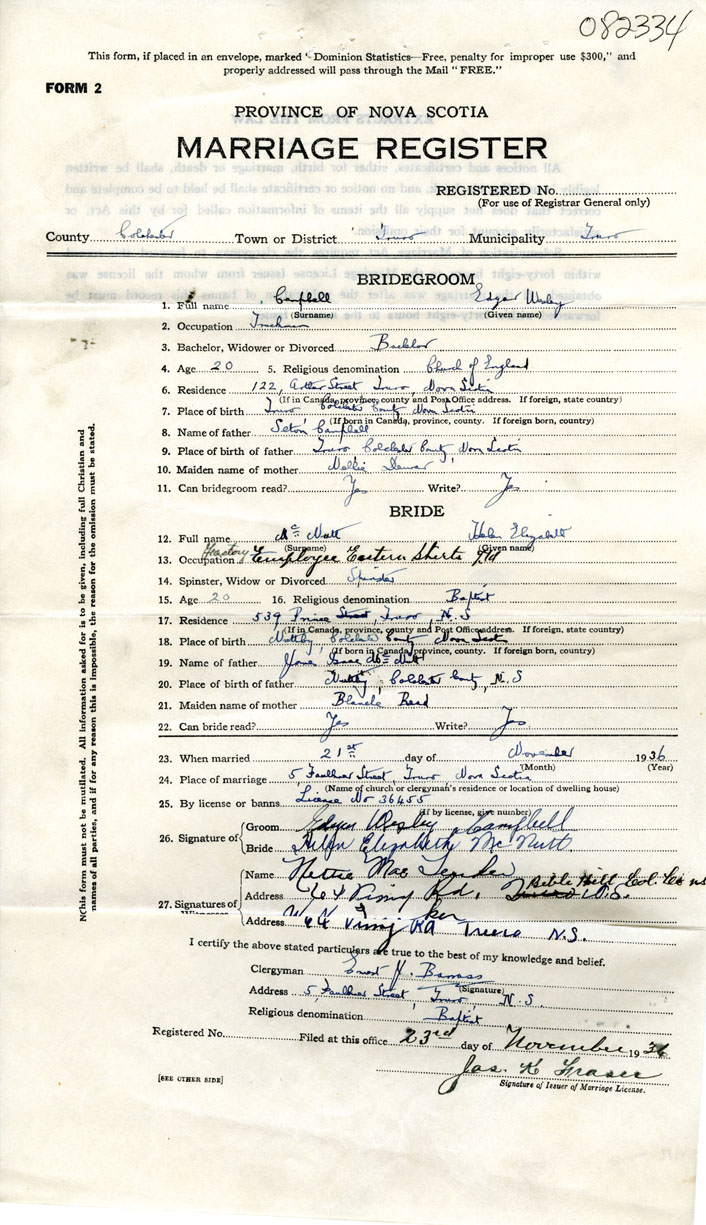 082334
This form, if placed in an envelope, marked "Dominion Statistics—Free, penalty for improper use $300," and
properly addressed will pass through the Mail "FREE."
FORM 2
PROVINCE OF NOVA SCOTIA
MARRIAGE REGISTER
REGISTERED No.
(For use of Registrar General only)
County Colchester Town or District Truro Municipality Truro
BRIDEGROOM
1. Full name Campbell Edgar Wesley
(Surname) (Given name)
2. Occupation Truckman
3. Bachelor, Widower or Divorced Bachelor
4. Age 20 5. Religious denomination Church of England
6. Residence 122, Street Truro, Nova Scotia
(If in Canada, province, county and Post Office address. If foreign, state country)
7. Place of birth Truro Colchester County Nova Scotia
(If born in Canada, province, county. If foreign born, country)
8. Name of father Seton Campbell
9. Place of father Truro Colchester County, Nova Scotia
10. Maiden name of mother Nellie Dewar
11. Can bridegroom read? Yes Write? Yes
BRIDE
12. Full name McNutt Helen Elizabeth
(Surname) (Given name)
13. Occupation Factory Employee Eastern Shirts Ltd
14. Spinster, Widow or Divorced Spinster
15. Age 20 16. Religious denomination Baptist
17. Residence 539 Prince Street, Truro, N.S
(If in Canada, province, county and Post Office address. If foreign, state country)
18. Place of birth Nuttby, Colchester County Nova Scotia
(If born in Canada, province, county. If foreign born, country)
19. Name of father Isaac McNutt
20. Place of birth of father Nuttby, Colchester County, N.S
21. Maiden name of mother Blanche Read
22. Can bride read? Yes Write? Yes
23. When married 21st day of November 1936
(Month) (Year)
24. Place of marriage 5 Faulkner Street, Truro, Nova Scotia
(Name of church or clergyman's residence or location of dwelling house)
25. By license or banns License No 36455
(If by license, give number)
26. Signature of Groom Edgar Wesley Campbell
Bride Helen Elizabeth McNutt
27. Signatures of Name Nettie Mae
Address 64 Vimy Rd, Bible Hill Col. Co NS
Address 64 Vimy Rd Truro N.S.
I certify the above stated particulars are true to the best of my knowledge and belief.
Clergyman Ernest
(Signature)
Address 5, Faulkner Street, Truro, N.S.
Religious denomination Baptist
Registered No. Filed at this office 23rd day of November 1936
Jas. K Fraser
Signature of Issuer of Marriage License.
[SEE OTHER SIDE]
This form must not be mutilated. All information asked for is to be given, including full Christian and
names of all parties, and if for any reason this is impossible, the reason for the omission must be stated.